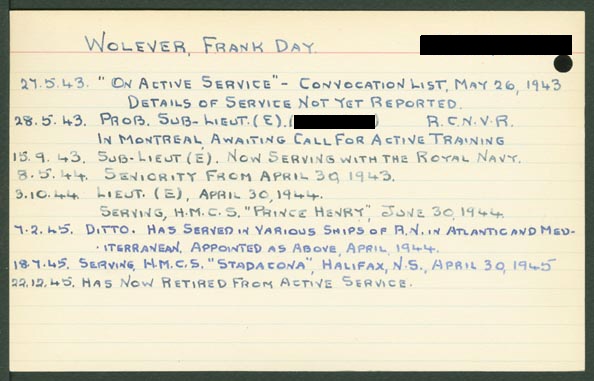 WOLEVER, FRANK DAY.
27.5.43. "ON ACTIVE SERVICE" - CONVOCATION LIST, MAY 26, 1943
DETAILS OF SERVICE NOT YET REPORTED.
28.5.43. PROB. SUB-LIEUT. (E). ( ) R.C.N.V.R.
IN MONTREAL, AWAITING CALL FOR ACTIVE TRAINING
15.9.43. SUB-LIEUT (E). NOW SERVING WITH THE ROYAL NAVY.
8.5.44. SENIORITY FROM APRIL 30, 1943.
3.10.44. LIEUT. (E), APRIL 30, 1944.
SERVING, H.M.C.S. "PRINCE HENRY", JUNE 30, 1944
7.2.45. DITTO. HAS SERVED IN VARIOUS SHIPS OF R.N. IN ATLANTIC AND MED-
·ITERRANEAN. APPOINTED AS ABOVE, APRIL, 1944.
18.7.45. SERVING, H.M.C.S. "STADACONA", HALIFAX, N.S., APRIL 30, 1945
22.12.45. HAS NOW RETIRED FROM ACTIVE SERVICE.